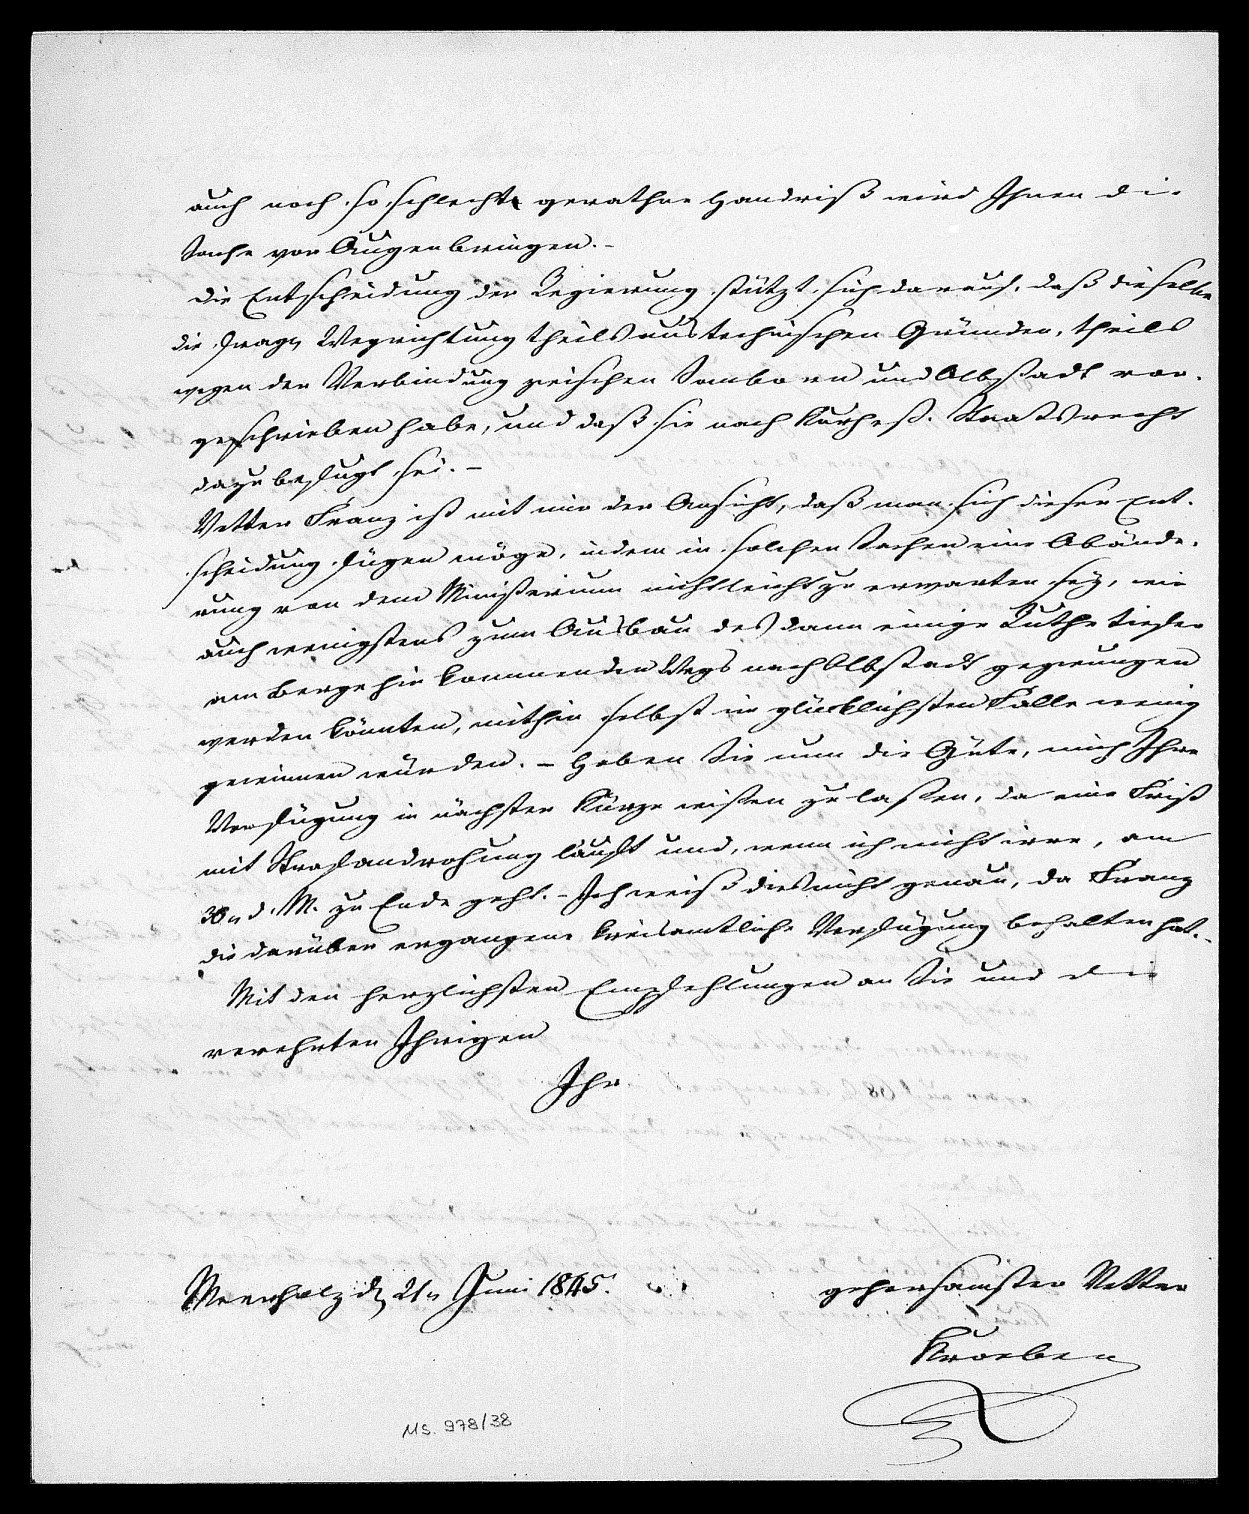 auch noch so schlecht gerathene Handriß wird Ihnen die
Sache vor Augen bringen. -
Die Entscheidung der Regierung stützt sich darauf, daß dieselbe
die fragl. Wegrichtung theils aus technischen Gründen, theils
wegen der Verbindung zwischen Somborn und Albstadt vor-
geschrieben habe, und daß sie nach Kurheß. Staatsrecht
dazu befugt sei. -
Vetter Franz ist mit mir der Ansicht, daß man sich dieser Ent-
scheidung fügen möge, indem in solchen Sachen eine Abände-
rung von dem Ministerium nicht leicht zu erwarten sey, wir
auch wenigstens zum Ausbau des dann einige Ruthe tiefer
am Berge hin kommenden Wegs nach Albstadt gezwungen
werden könnten, mithin selbst im glücklichsten Falle wenig
gewinnen würden. - Haben Sie nun die Güte, mich Ihre
Verfügung in nächster Kürze wißen zu laßen, da eine Frist
mit Strafandrohung läuft und, wenn ich nicht irre, am
30n d. M. zu Ende geht. - Ich weiß dies nicht genau, da Franz
die darüber ergangene kreisamtliche Verfügung behalten hat. -
Mit den herzlichsten Empfehlungen an Sie und die
verehrten Ihrigen
Ihr
Meerholz d. 21n Juni 1845.
gehorsamster Vetter
Kroeber
Ms. 978/38